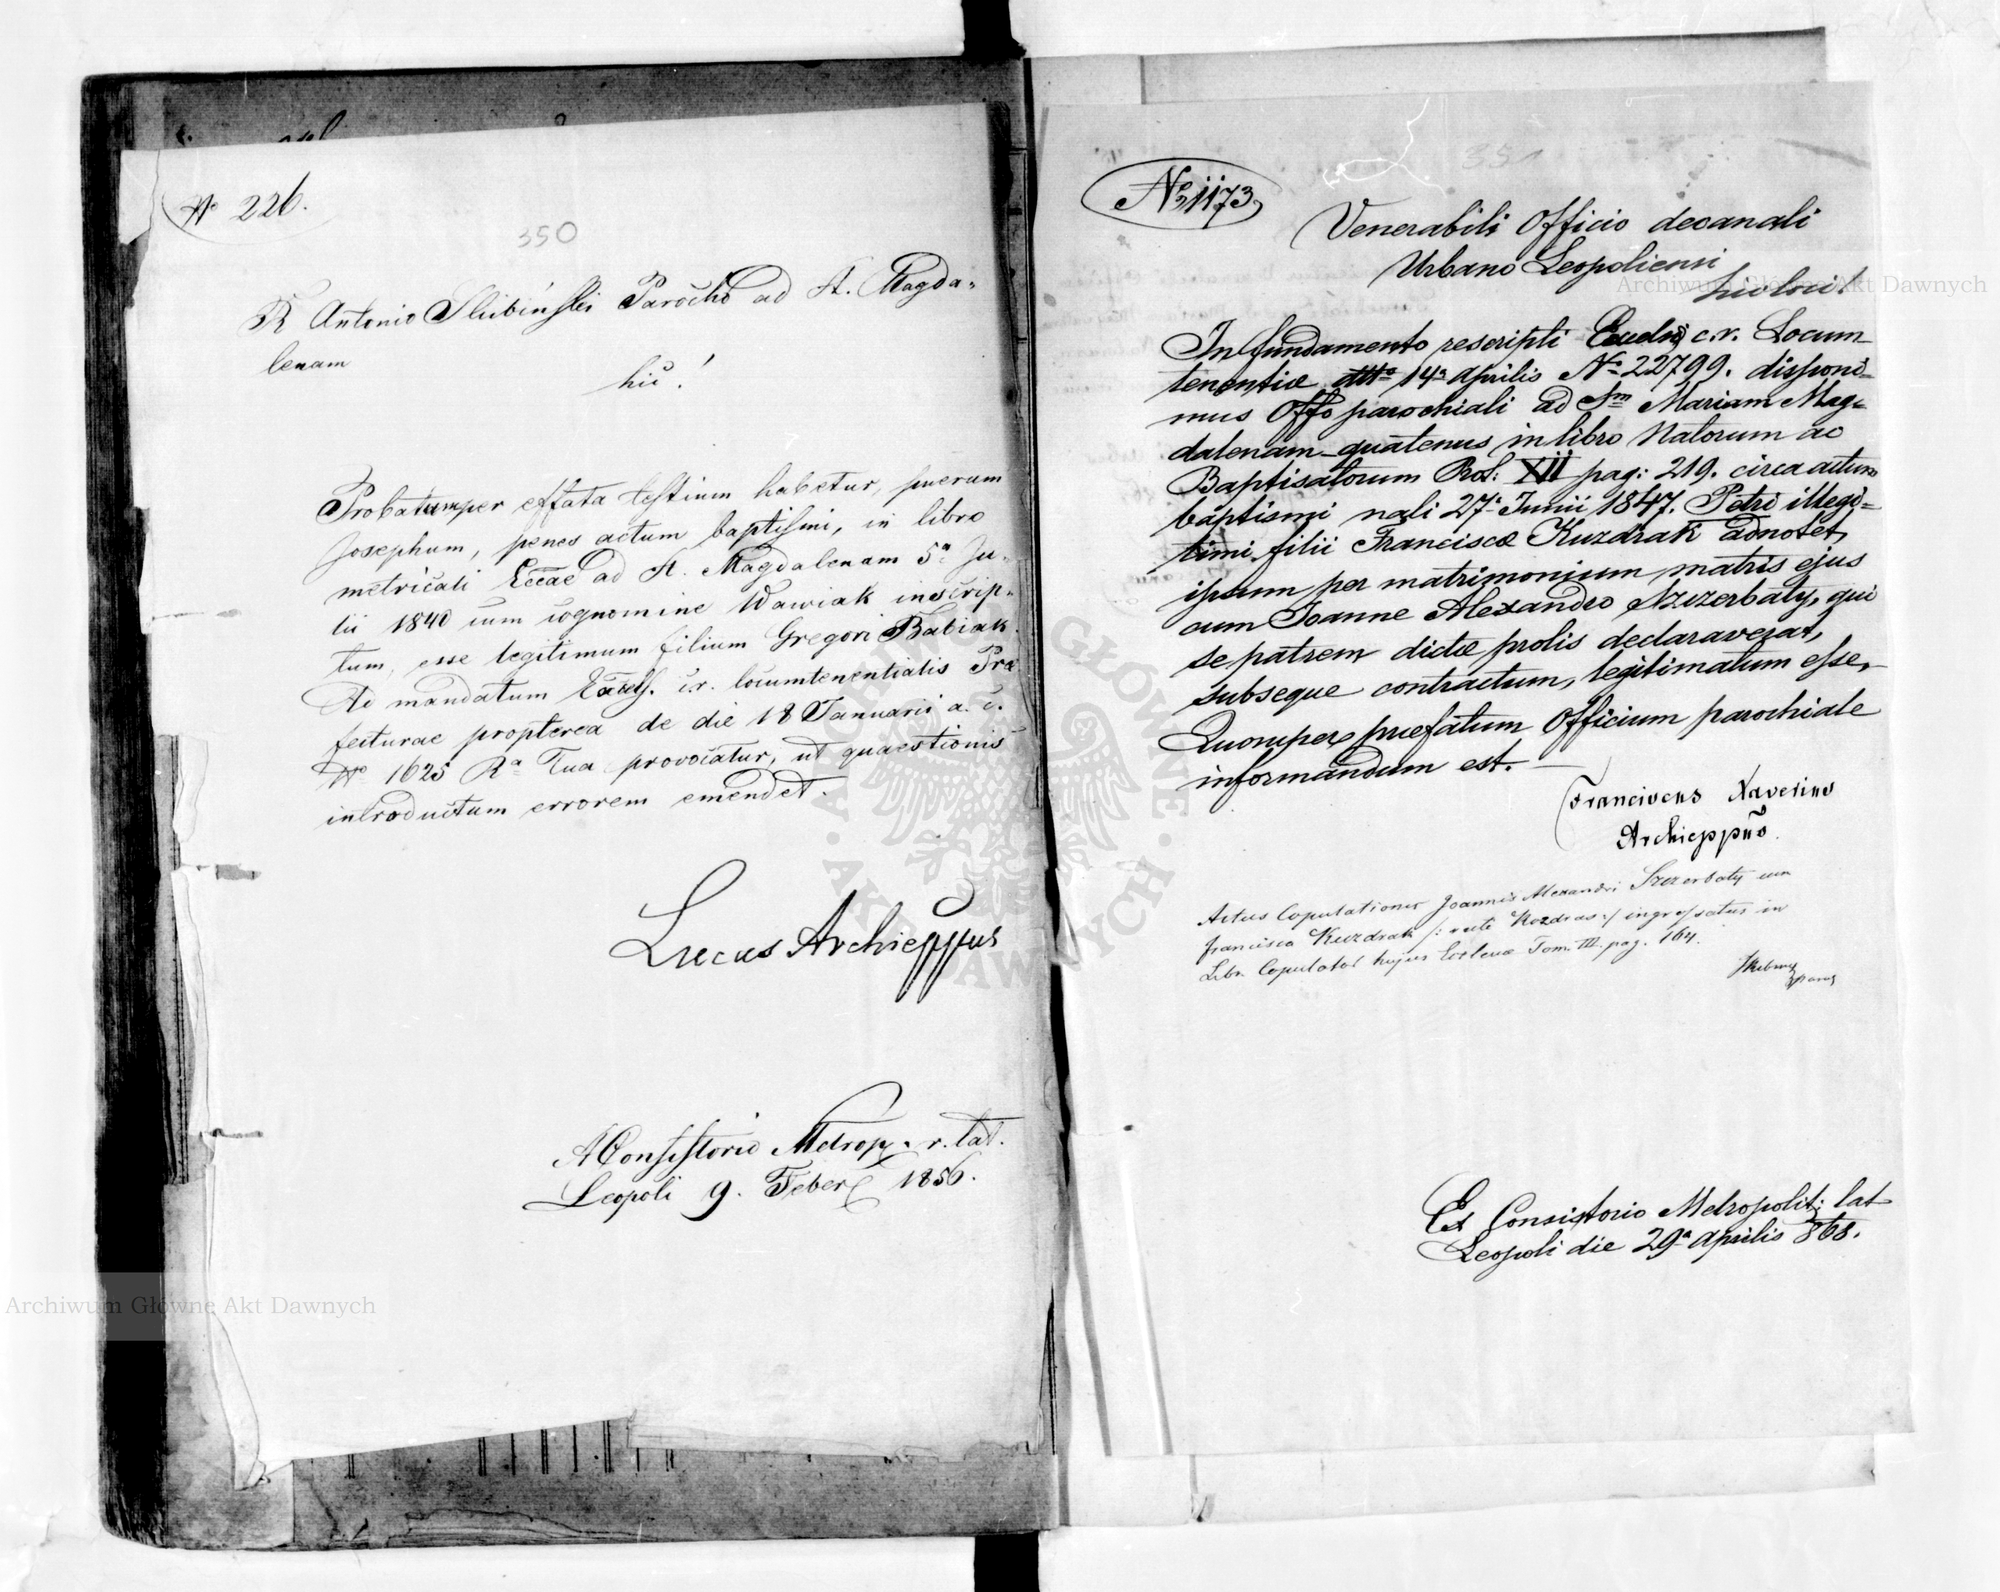 No 226.
350
R Antonio Slubiński Parocho ad St. Magda-
lenam
hic!
Probatum per effata testium habetur, puerum
Josephum, penes actum baptismi, in libro
metricali Eccae ad St. Magdalenam 5a Ju-
lii 1840 cum cognomine Wawiak inscrip-
tum, esse legitimum filium Gregori Babiak.
Ad mandatum Excels. c.r. locumtenentialis Prae
fecturae propterea de die 18 Januarii a. c.
No 1625 Ra Tua provocatur, ut quaestionis
introductum errorem emendet.
Lucas Archieppus
A Consistorio Metrop. r. lat.
Leopoli 9. Feber 1856.
No 1173
351
Venerabili Officio decanali
Urbano Leopoliensi
In fundamento rescripti Excelsi c.r. Locum
tenentiæ dtto 14a Aprilis No 22799. disponi-
mus Offo parochiali ad Stm Mariam Mag-
dalenam quatenus in libro Natorum ac
Baptisatorum Rol: XII pag: 219. circa actum
baptismi nali 27a Junii 1847. Petri illegi-
timi filii Franciscæ Kuzdrak adnotet,
ipsum per matrimonium matris ejus
cum Joanne Alexandro Szczerbaty, qui
se patrem dictæ prolis declaraverat,
subseque contractum, legitimatum esse,
Quorsuper præfatum Officium parochiale
informandum est.
Franciscus Xaverius
Archieppus
Actus Copulationis Joannis Alexandri Szczerbaty cum
Francisca Kuzdrak /: recte Kozdras :/ ingressatus in
Libr. Copulator hujus Ecclesiæ Tom. III. pag. 164.
Ex Consistorio Metropolit: lat
Leopoli die 29a Aprilis 868.
Archiwum Główne Akt Dawnych
Archiwum Główne Akt Dawnych
ARCHIWUM GŁÓWNE AKT DAWNYCH